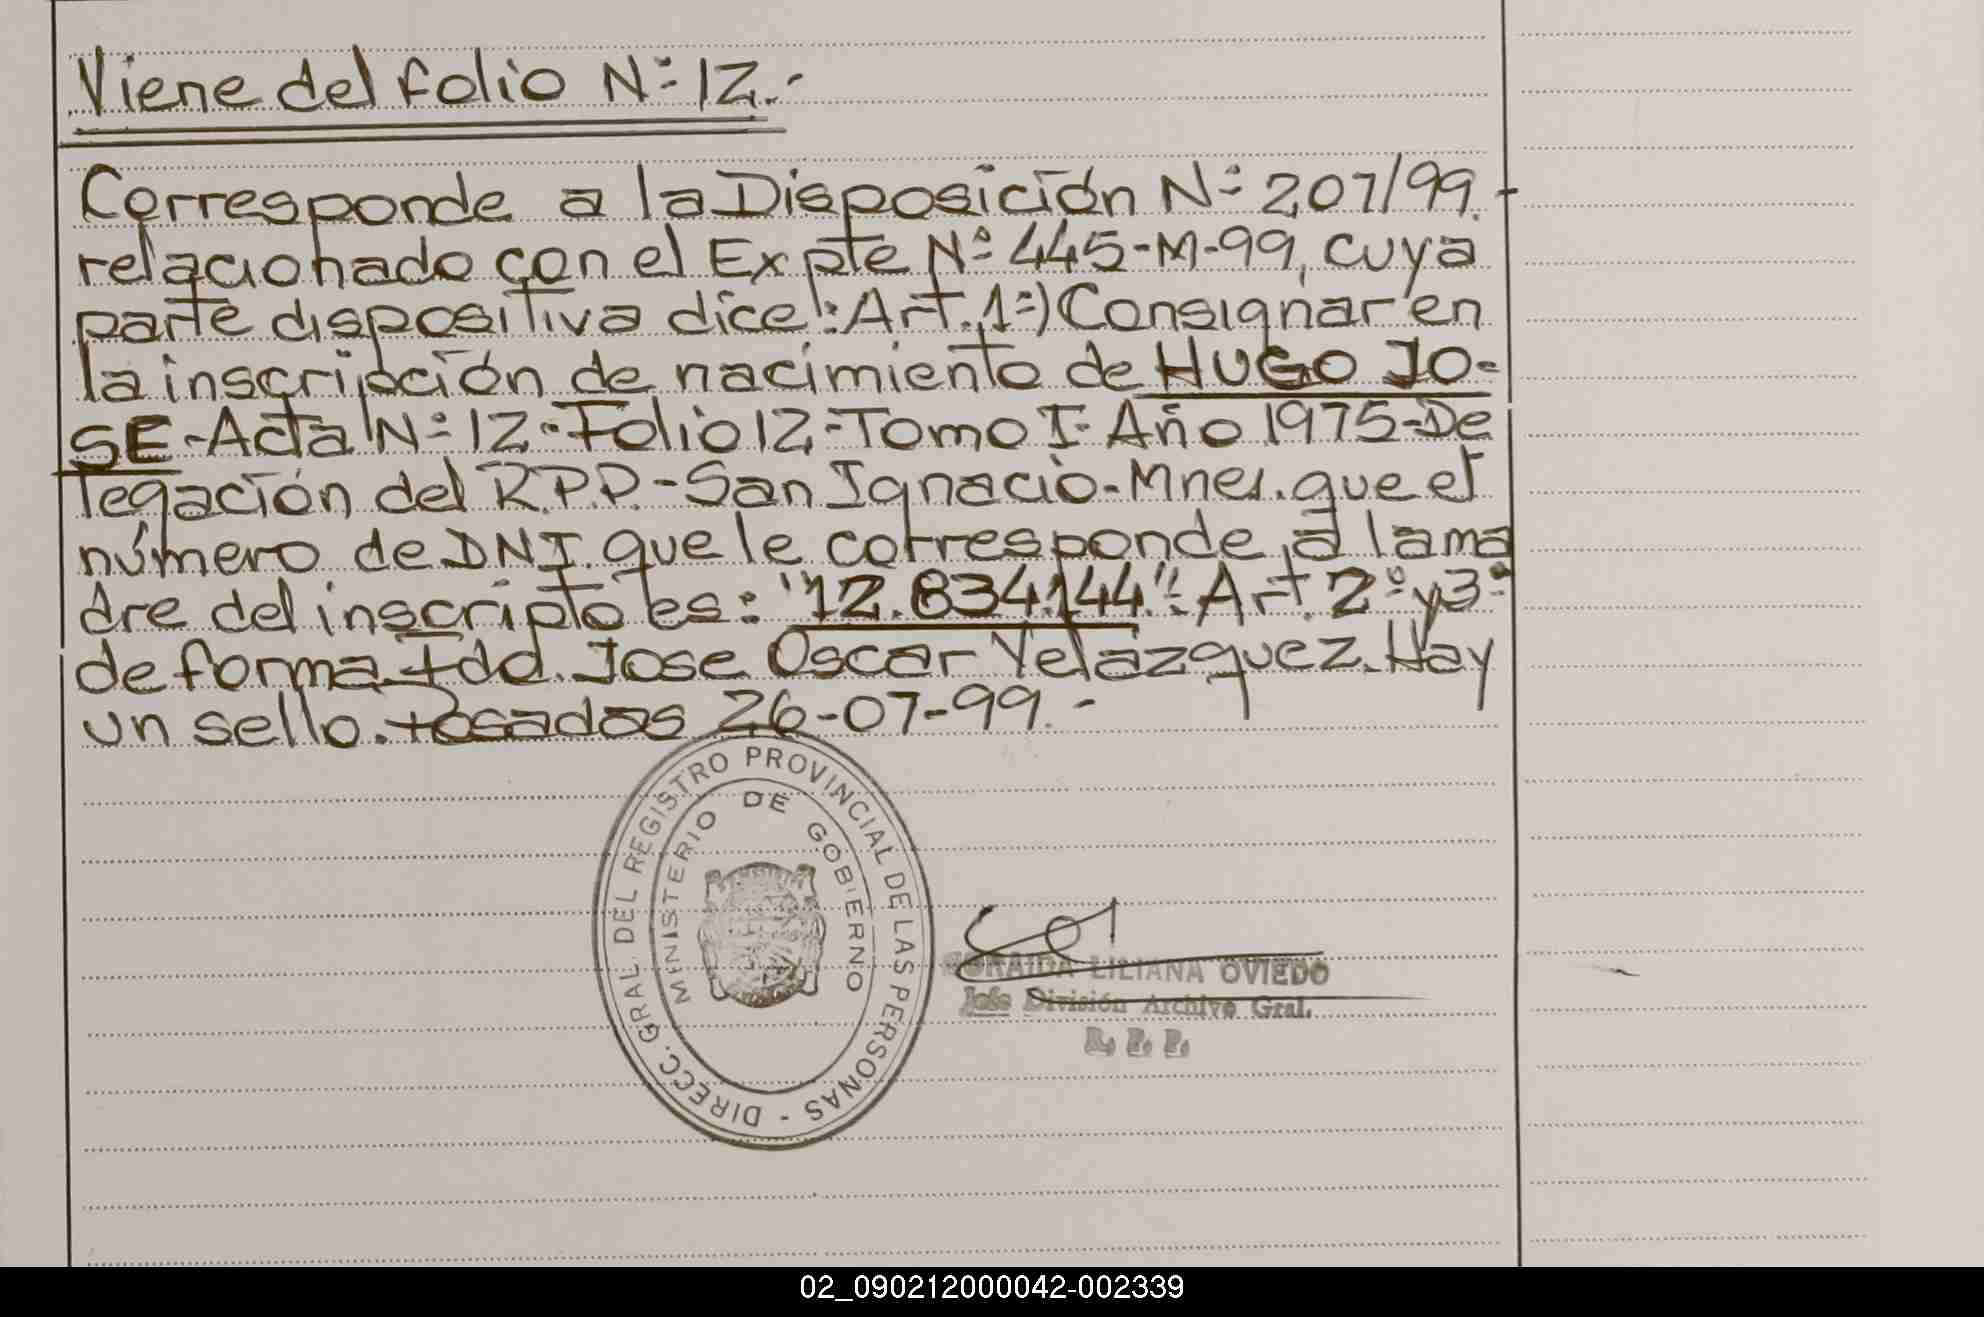 Viene del folio Nº 12.-
Corresponde a la Disposición Nº 207/99.-
relacionado con el Expte Nº 445-M-99, cuya
parte dispositiva dice: Art. 1º) Consignar en
la inscripción de nacimiento de HUGO JO-
SE-Acta Nº 12-Folio 12-Tomo I-Año 1975-De
legación del R.P.P.-San Ignacio-Mnes. que el
número de DNI. que le corresponde a la ma
dre del inscripto es: "12.834.144". Art. 2º y 3º
de forma Fdo. Jose Oscar Velázquez. Hay
un sello. Posadas 26-07-99.-
DIRECC. GRAL. DEL REGISTRO PROVINCIAL DE LAS PERSONAS -
MINISTERIO DE GOBIERNO
LILIANA OVIEDO
Jefe División Archivo Gral.
R. P. P.
02_090212000042-002339